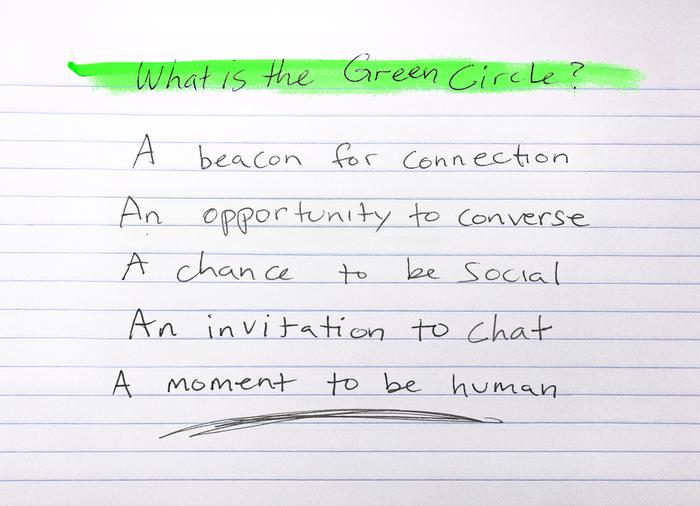 What is the Green Circle?
A beacon for connection
An opportunity to converse
A chance to be social
An invitation to chat
A moment to be human